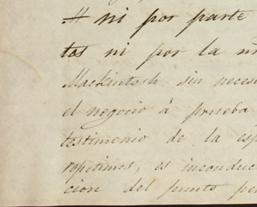 # ni por parte
tas ni por la
Mackintosh sin neces
el negocio á prueba
testimonio de la esp
ropetimos, es inconduc
cion del punto pe